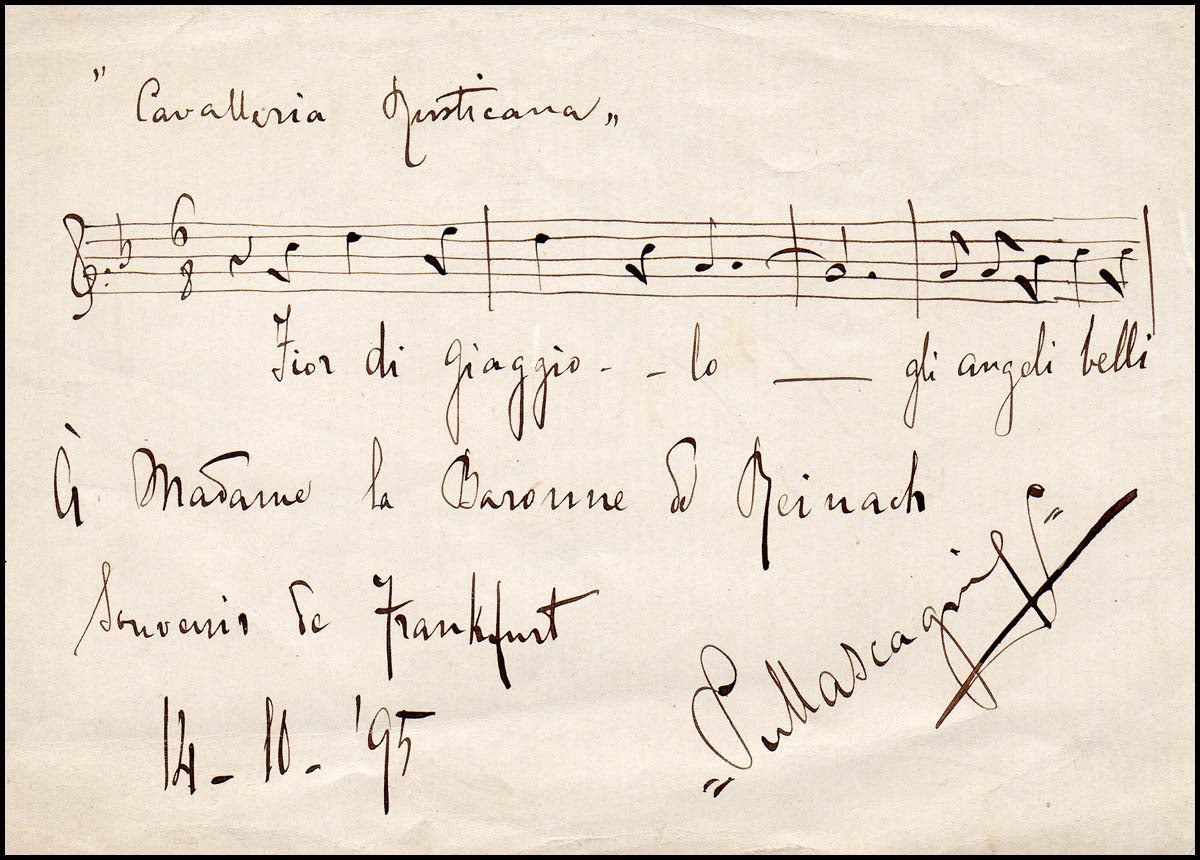 " Cavalleria Rusticana "
6
8
Fior di giaggio - - lo — gli angeli belli
À Madame la Baronne de Reinach
Souvenir de Frankfurt
14 - 10 - '95
"PMascagni"